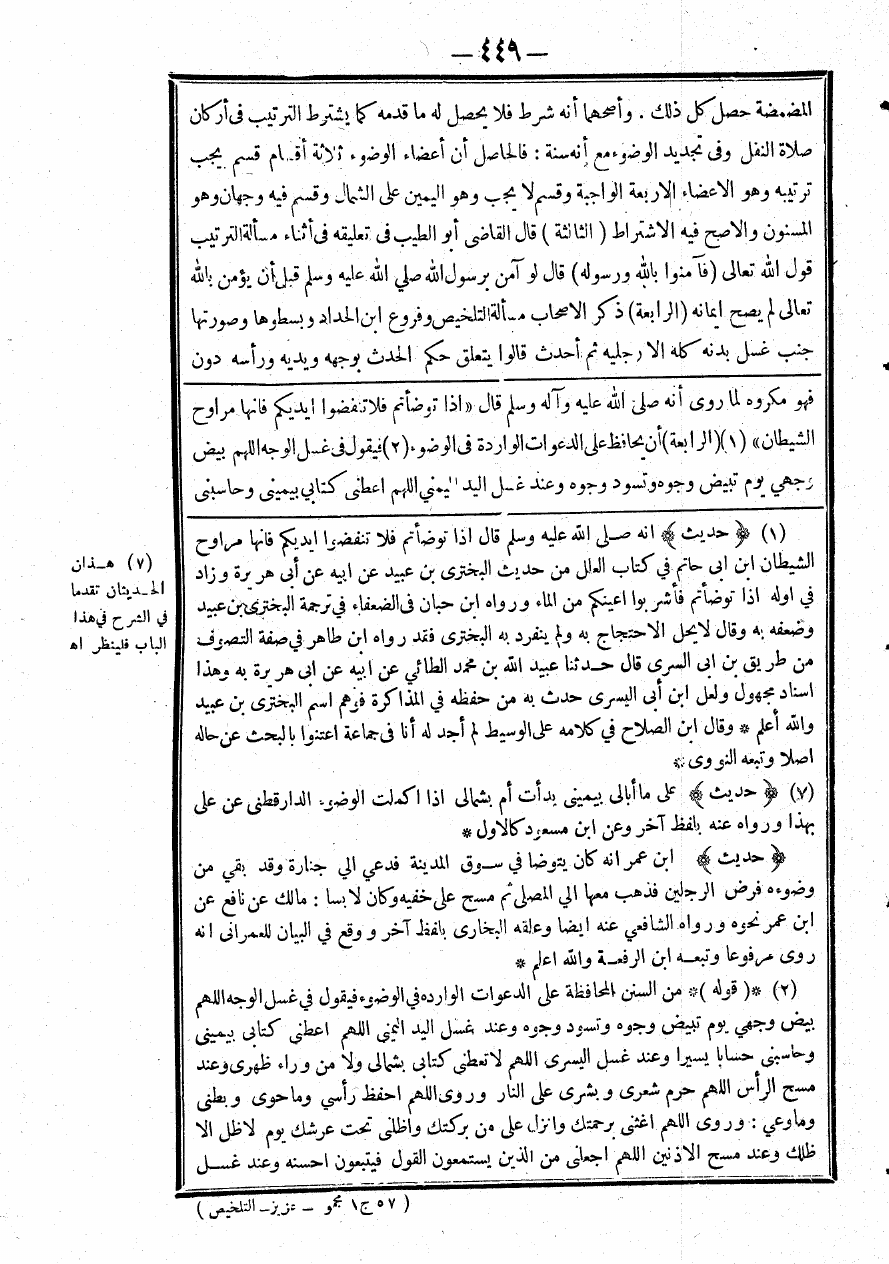 — ٤٤٩ —
المضمضة حصل كل ذلك . وأصحهما أنه شرط فلا يحصل له ما قدمه كما يشترط الترتيب فى أركان
صلاة النفل وفى تجديد الوضوء مع أنه سنة : فالحاصل أن أعضاء الوضوء ثلاثة أقسام قسم يجب
ترتيبه وهو الاعضاء الاربعة الواجبة وقسم لا يجب وهو اليمين على الشمال وقسم فيه وجهان وهو
المسنون والاصح فيه الاشتراط ( الثالثة ) قال القاضى أبو الطيب فى تعليقه فى أثناء مسألة الترتيب
قول الله تعالى (فآمنوا بالله ورسوله) قال لو آمن برسول الله صلي الله عليه وسلم قبل أن يؤمن بالله
تعالى لم يصح ايمانه (الرابعة) ذكر الاصحاب مسألة التلخيص وفروع ابن الحداد وبسطوها وصورتها
جنب غسل بدنه كله الا رجليه ثم أحدث قالوا يتعلق حكم الحدث بوجهه ويديه ورأسه دون
فهو مكروه لما روى أنه صلى الله عليه وآله وسلم قال «اذا توضأتم فلا تنفضوا ايديكم فانها مراوح
الشيطان» (١) (الرابعة) أن يحافظ على الدعوات الواردة فى الوضوء (٢) فيقول فى غسل الوجه اللهم بيض
وجهي يوم تبيض وجوه وتسود وجوه وعند غسل اليد اليمني اللهم اعطنى كتابي بيمينى وحاسبنى
(١) ﴿ حديث ﴾ انه صلى الله عليه وسلم قال اذا توضأتم فلا تنفضوا ايديكم فانها مراوح
الشيطان ابن ابى حاتم في كتاب العلل من حديث البخترى بن عبيد عن ابيه عن أبى هريرة وزاد
في اوله اذا توضأتم فأشربوا اعينكم من الماء ورواه ابن حبان فى الضعفاء في ترجمة البخترى بن عبيد
وضعفه به وقال لا يحل الاحتجاج به ولم ينفرد به البخترى فقد رواه ابن طاهر في صفة التصوف
من طريق بن ابى السرى قال حدثنا عبيد الله بن محمد الطائي عن ابيه عن ابى هريرة به وهذا
اسناد مجهول ولعل ابن أبى اليسرى حدث به من حفظه في المذاكرة فوهم اسم البخترى بن عبيد
والله أعلم * وقال ابن الصلاح في كلامه على الوسيط لم أجد له أنا فى جماعة اعتنوا بالبحث عن حاله
اصلا وتبعه النووى *
(٧) ﴿ حديث ﴾ على ما أبالى بيمينى بدأت أم بشمالى اذا اكملت الوضوء الدارقطنى عن على
بهذا ورواه عنه بلفظ آخر وعن ابن مسعود كالاول *
﴿ حديث ﴾ ابن عمر انه كان يتوضا في سوق المدينة فدعي الي جنازة وقد بقي من
وضوءه فرض الرجلين فذهب معها الي المصلى ثم مسح على خفيه وكان لابسا : مالك عن نافع عن
ابن عمر نحوه ورواه الشافعي عنه ايضا وعلقه البخارى بلفظ آخر ووقع في البيان للعمرانى انه
روى مرفوعا وتبعه ابن الرفعة والله اعلم *
(٢) *( قوله )* من السنن المحافظة على الدعوات الوارده في الوضوء فيقول في غسل الوجه اللهم
بيض وجهي يوم تبيض وجوه وتسود وجوه وعند غسل اليد اليمنى اللهم اعطنى كتابى بيمينى
وحاسبنى حسابا يسيرا وعند غسل اليسرى اللهم لا تعطنى كتابى بشمالى ولا من وراء ظهرى وعند
مسح الرأس اللهم حرم شعرى وبشرى على النار وروى اللهم احفظ رأسي وما حوى وبطنى
وما وعي : وروى اللهم اغثنى برحمتك وانزل على من بركتك واظلنى تحت عرشك يوم لا ظل الا
ظلك وعند مسح الاذنين اللهم اجعلنى من الذين يستمعون القول فيتبعون احسنه وعند غسل
( ٥٧ ج ١ مجمو – عزيز – التلخيص )
(٧) هذان
الحديثان تقدما
في الشرح في هذا
الباب فلينظر اه